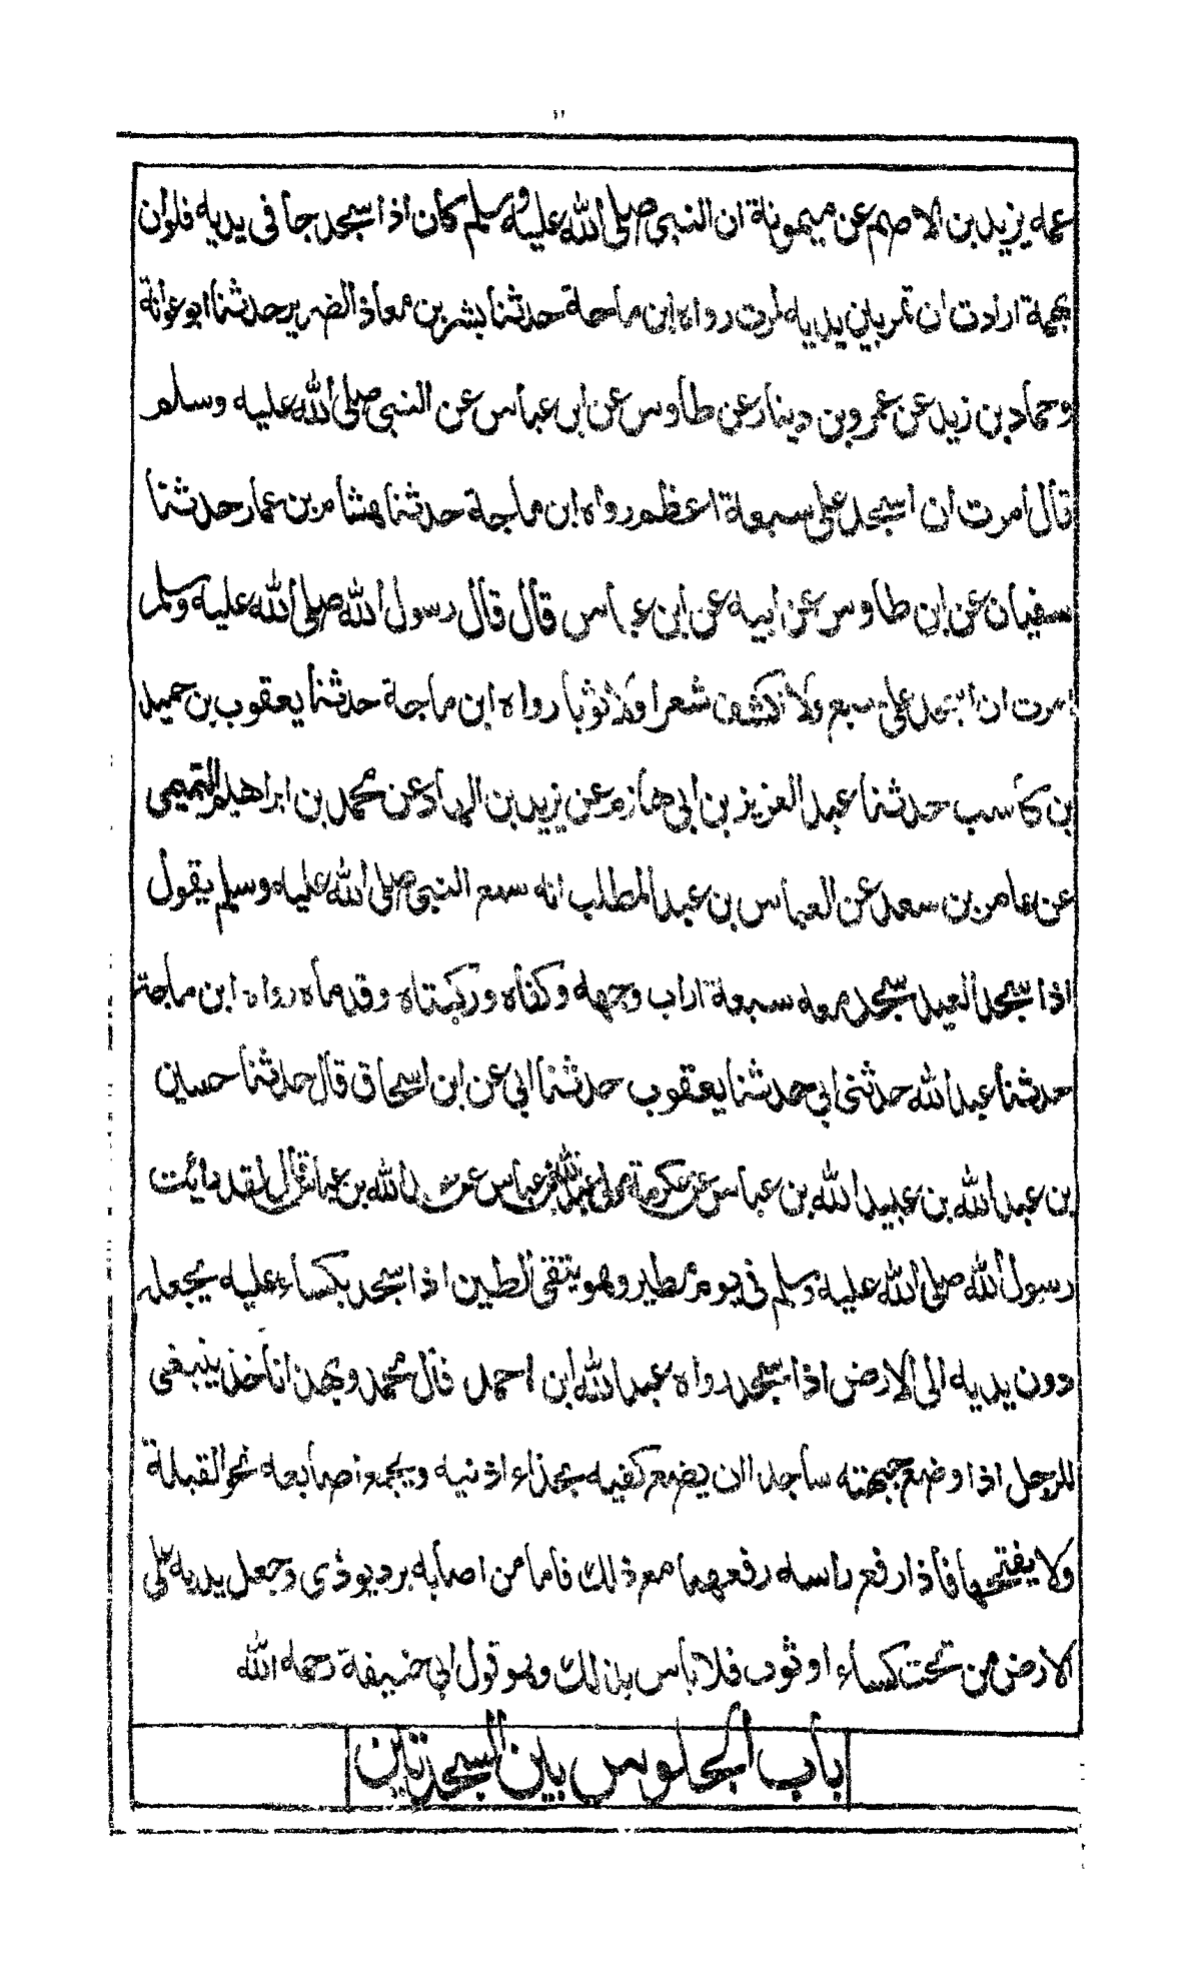 عمه يزيد بن الاصم عن ميمونة ان النبي صلى الله عليه وسلم كان اذا سجد جافى يديه فلوان
بهمة ارادت ان تمر بين يديه لمرت رواه ابن ماجة حدثنا بشر بن معاذ الضرير حدثنا ابو عوانة
وحماد بن زيد عن عمرو بن دينار عن طاوس عن ابن عباس عن النبي صلى الله عليه وسلم
قال امرت ان اسجد على سبعة اعظم رواه ابن ماجة حدثنا هشام بن عمار حدثنا
سفيان عن ابن طاوس عن ابيه عن ابن عباس قال قال رسول الله صلى الله عليه وسلم
امرت ان اسجد على سبع ولا نكشف شعرا ولا ثوبا رواه ابن ماجة حدثنا يعقوب بن حميد
بن كاسب حدثنا عبد العزيز بن ابي حازم عن يزيد بن الهاد عن محمد بن ابراهيم التميمي
عن عامر بن سعد عن العباس بن عبد المطلب انه سمع النبي صلى الله عليه وسلم يقول
اذا سجد العبد سجد معه سبعة اراب وجهه وكفاه وركبتاه وقدماه رواه ابن ماجة
حدثنا عبد الله حدثنى ابي حدثنا يعقوب حدثنا ابي عن ابن اسحاق قال حدثنا حسين
بن عبد الله بن عبيد الله بن عباس عن عكرمة مولى عبد الله بن عباس عن عبد الله بن عباس قال لقد رائت
رسول الله صلى الله عليه وسلم في يوم مطير وهو يتقى الطين اذا سجد بكساء عليه يجعله
دون يديه الى الارض اذا سجد رواه عبد الله ابن احمد قال محمد وبهذا ناخذ ينبغى
للرجل اذا وضع جبهته ساجدا ان يضع كفيه بحذاء اذنيه ويجمع اصابعه نحو القبلة
ولا يفتحها فاذا رفع راسه رفعهما مع ذلك فاما من اصابه برد يوذى وجعل يديه على
الارض من تحت كساء او ثوب فلا باس بذلك وهو قول ابي حنيفة رحمه الله
باب الجلوس بين السجدتين